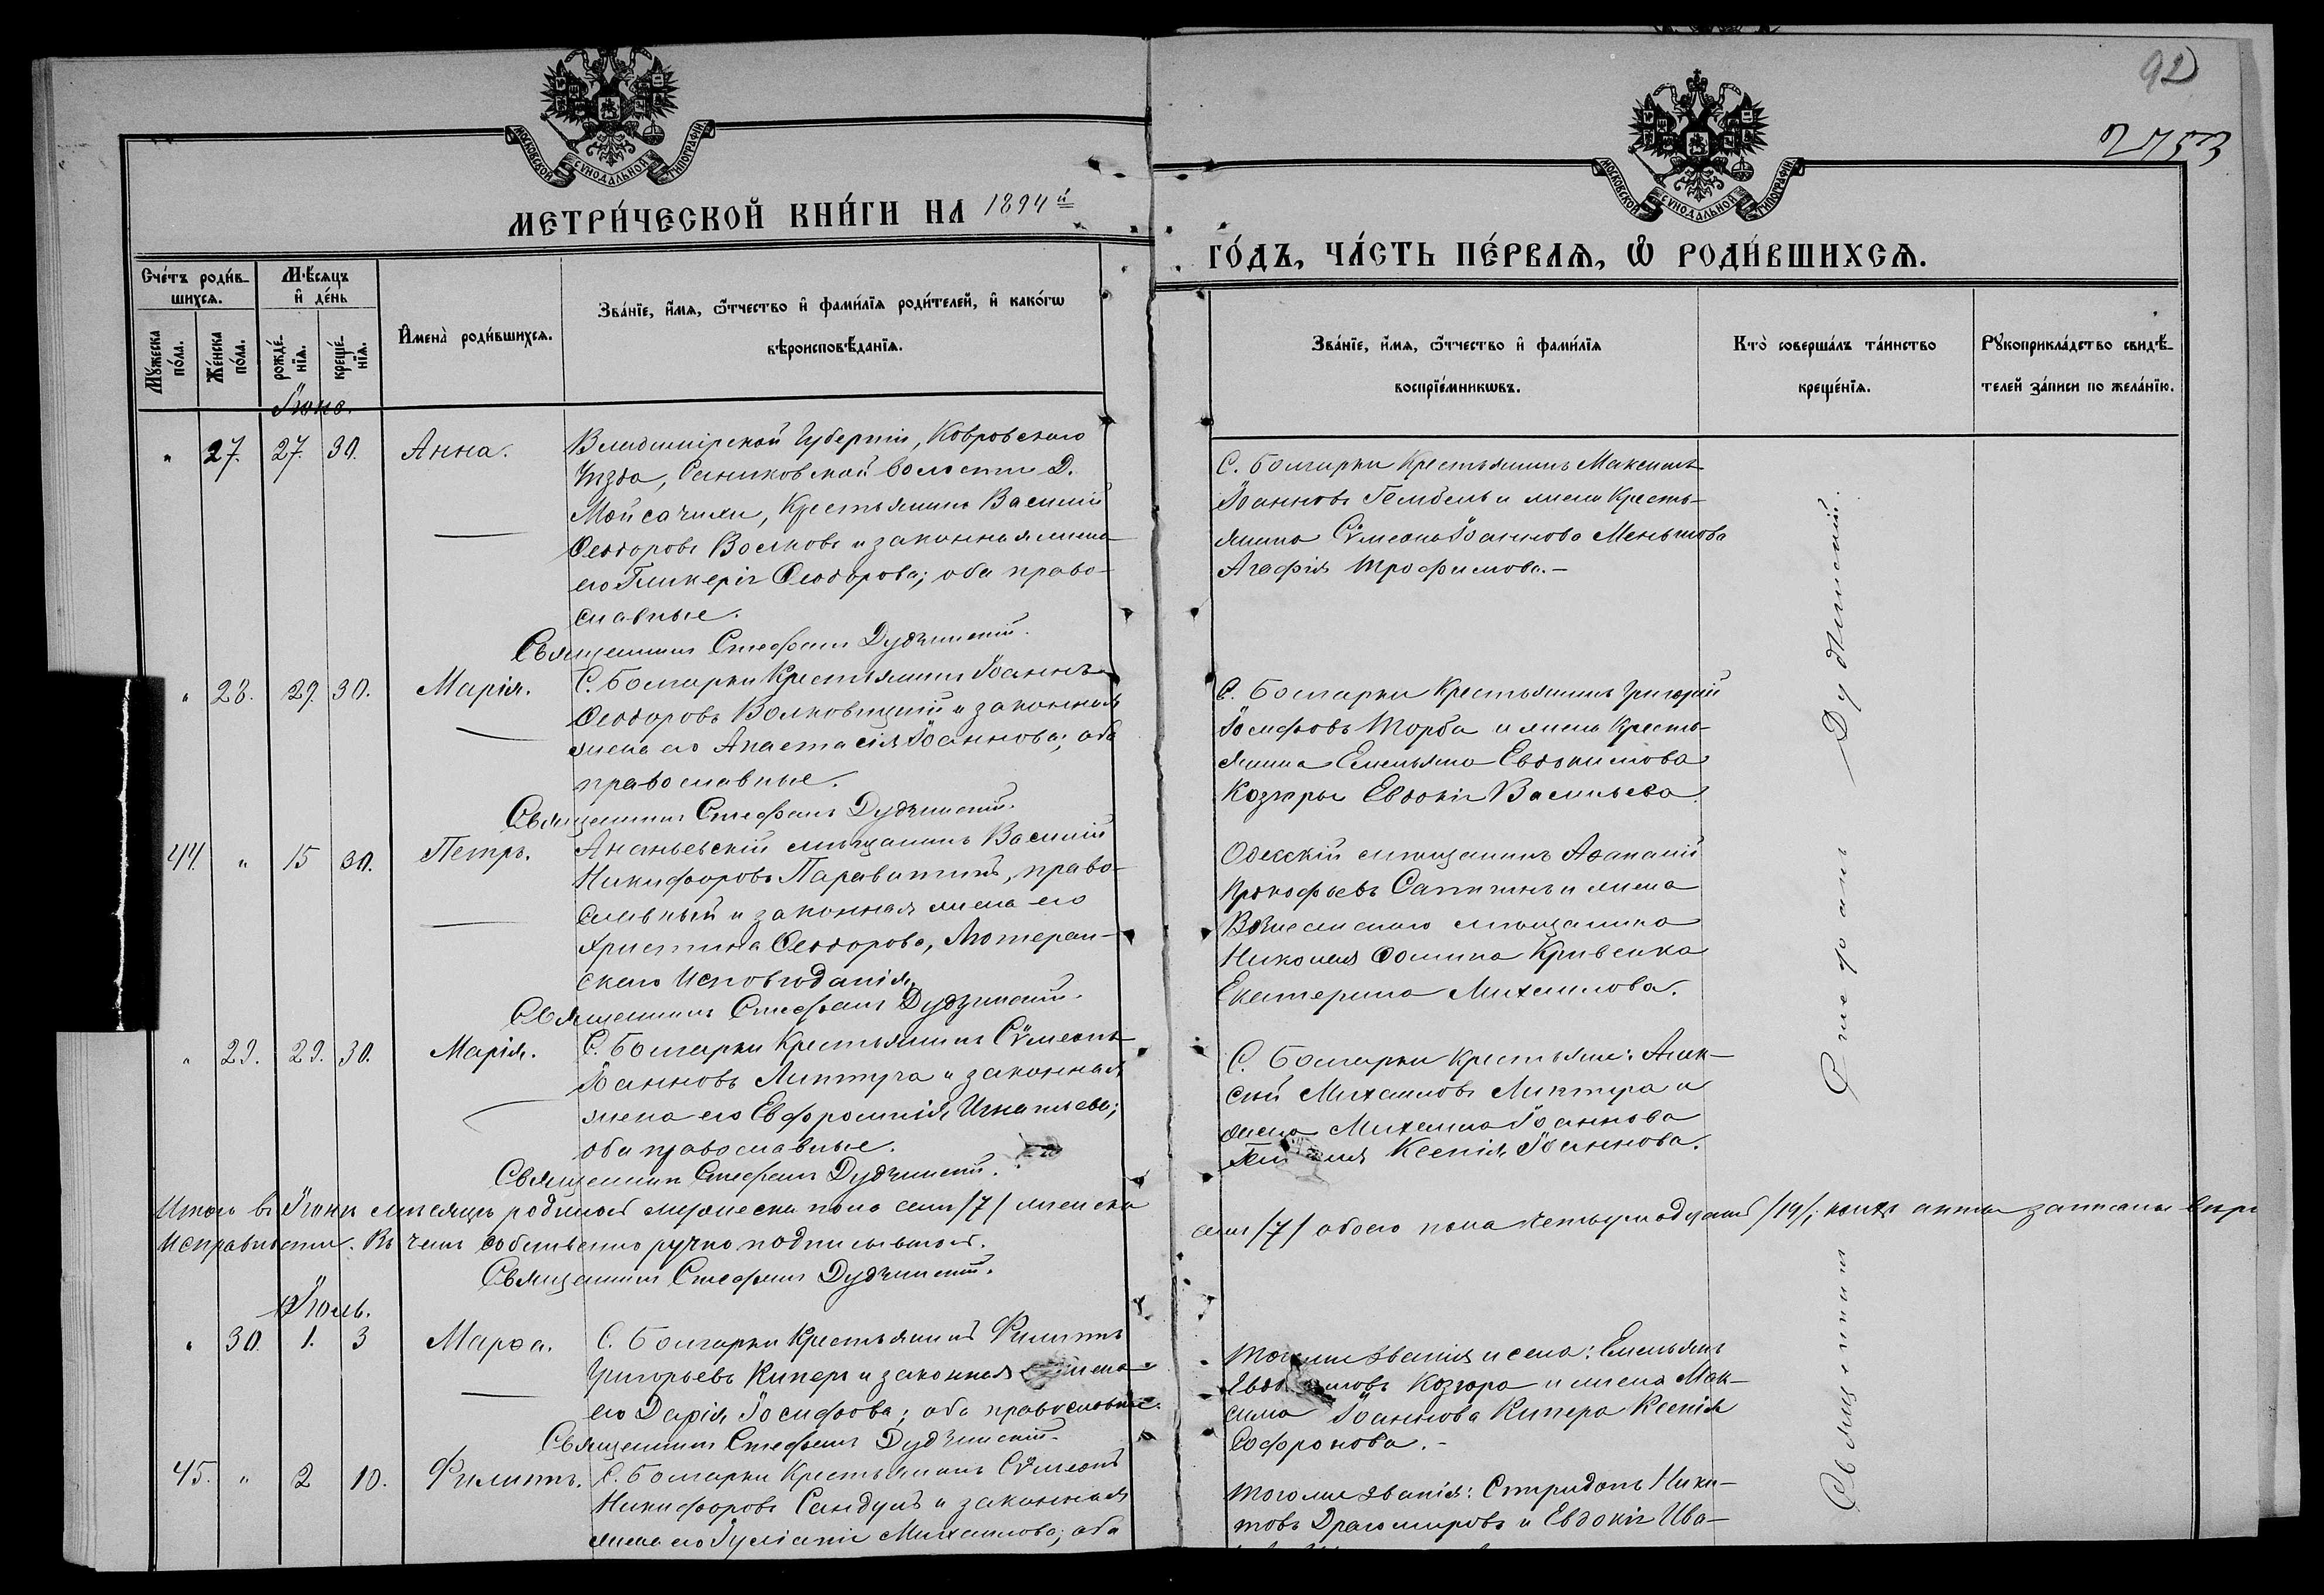 92
2753
МОСКОВСКОЙ СѴНОДАЛЬНОЙ ТИПОГРАФІИ
МОСКОВСКОЙ СѴНОДАЛЬНОЙ ТИПОГРАФІИ
МЕТРИ́ЧЕСКОЙ КНИ́ГИ НА 1894й
ГО́ДЪ, ЧА́СТЬ ПЕ́РВАѦ, Ѿ РОДИ́ВШИХСѦ.
Сче́тъ роди́вшихсѧ.
Мꙋ́жеска по́ла.
Же́нска по́ла.
Мѣ́сѧцъ и҆ де́нь
рожде́нїѧ.
креще́нїѧ.
И҆мена̀ роди́вшихсѧ.
Зва́нїе, и҆́мѧ, ѻ҆́тчество и҆ фами́лїѧ роди́телей, и҆ како́гѡ
вѣроисповѣ́данїѧ.
Зва́нїе, и҆́мѧ, ѻ҆́тчество и҆ фами́лїѧ
воспрїе́мникѡвъ.
Кто̀ соверша́лъ та́инство
креще́нїѧ.
Рꙋкоприкла́дство свидѣ́-
телей за́писи по жела́нїю.
Іюнь.
" 27. 27. 30. Анна.
Владимірской Губерніи, Ковровскаго
Уѣзда, Саниковской волости Д.
Мойсачихи, Крестьянинъ Василій
Ѳеодоровъ Волковъ и законная жена
его Гликерія Ѳеодорова; оба право-
славные.
Священникъ Стефанъ Дудчинскій.
С. Болгарки Крестьянинъ Максимъ
Іоанновъ Гембель и жена Кресть-
янина Сѵмеона Іоаннова Меньшова
Агафія Трофимова.-
" 28. 29. 30. Марія.
С. Болгарки Крестьянинъ Іоаннъ
Ѳеодоровъ Волковицкій и законная
жена его Анастасія Іоаннова; оба
православные.
Священникъ Стефанъ Дудчинскій.
С. Болгарки Крестьянинъ Григорій
Іосифовъ Торба и жена Кресть-
янина Емельяна Евдокимова
Козюры Евдокія Васильева.
44. " 15 30. Петръ.
Ананьевскій мѣщанинъ Василій
Никифоровъ, право-
славный и законная жена его
Христина Ѳеодорова, Лютеран-
скаго Исповѣданія.
Священникъ Стефанъ Дудчинскій.
Одесскій мѣщанинъ Аѳанасій
Прокофьевъ и жена
Вознесенскаго мѣщанина
Николая Ѳомина Кривенка
Екатерина Михаилова.
" 29. 29. 30. Марія.
С. Болгарки Крестьянинъ Сѵмеонъ
Іоанновъ и законная
жена его Евфросинія Игнатьева;
оба православные.
Священникъ Стефанъ Дудчинскій.
С. Болгарки Крестьяне: Алек-
сѣй Михаиловъ и
жена Михаила Іоаннова
Ксенія Іоаннова.
Итого въ Іюнѣ мѣсяцѣ родилось мужеска пола семь /7/ женска
семь /7/ обоего пола четырнадцать /14/; коихъ акты записаны
исправности. Въ чемъ собственноручно подписываюсь.
Священникъ Стефанъ Дудчинскій.
Іюль.
" 30. 1. 3 Марѳа.
С. Болгарки Крестьянинъ Филиппъ
Григорьевъ Киперъ и законная жена
его Дарія Іосифова; оба православные.
Священникъ Стефанъ Дудчинскій.
Тогоже званія и села: Емельянъ
Козюра и жена Мак-
сима Іоаннова Кипера Ксенія
Софронова.-
45. " 2 10. Филиппъ.
С. Болгарки Крестьянинъ Сѵмеонъ
Никифоровъ Сандулъ и законная
жена его Іуліанія Михаилова; оба
Тогоже званія: Спиридонъ Ники-
товъ Драгомировъ и Евдокія Ива-
Священникъ Стефанъ Дудчинскій.